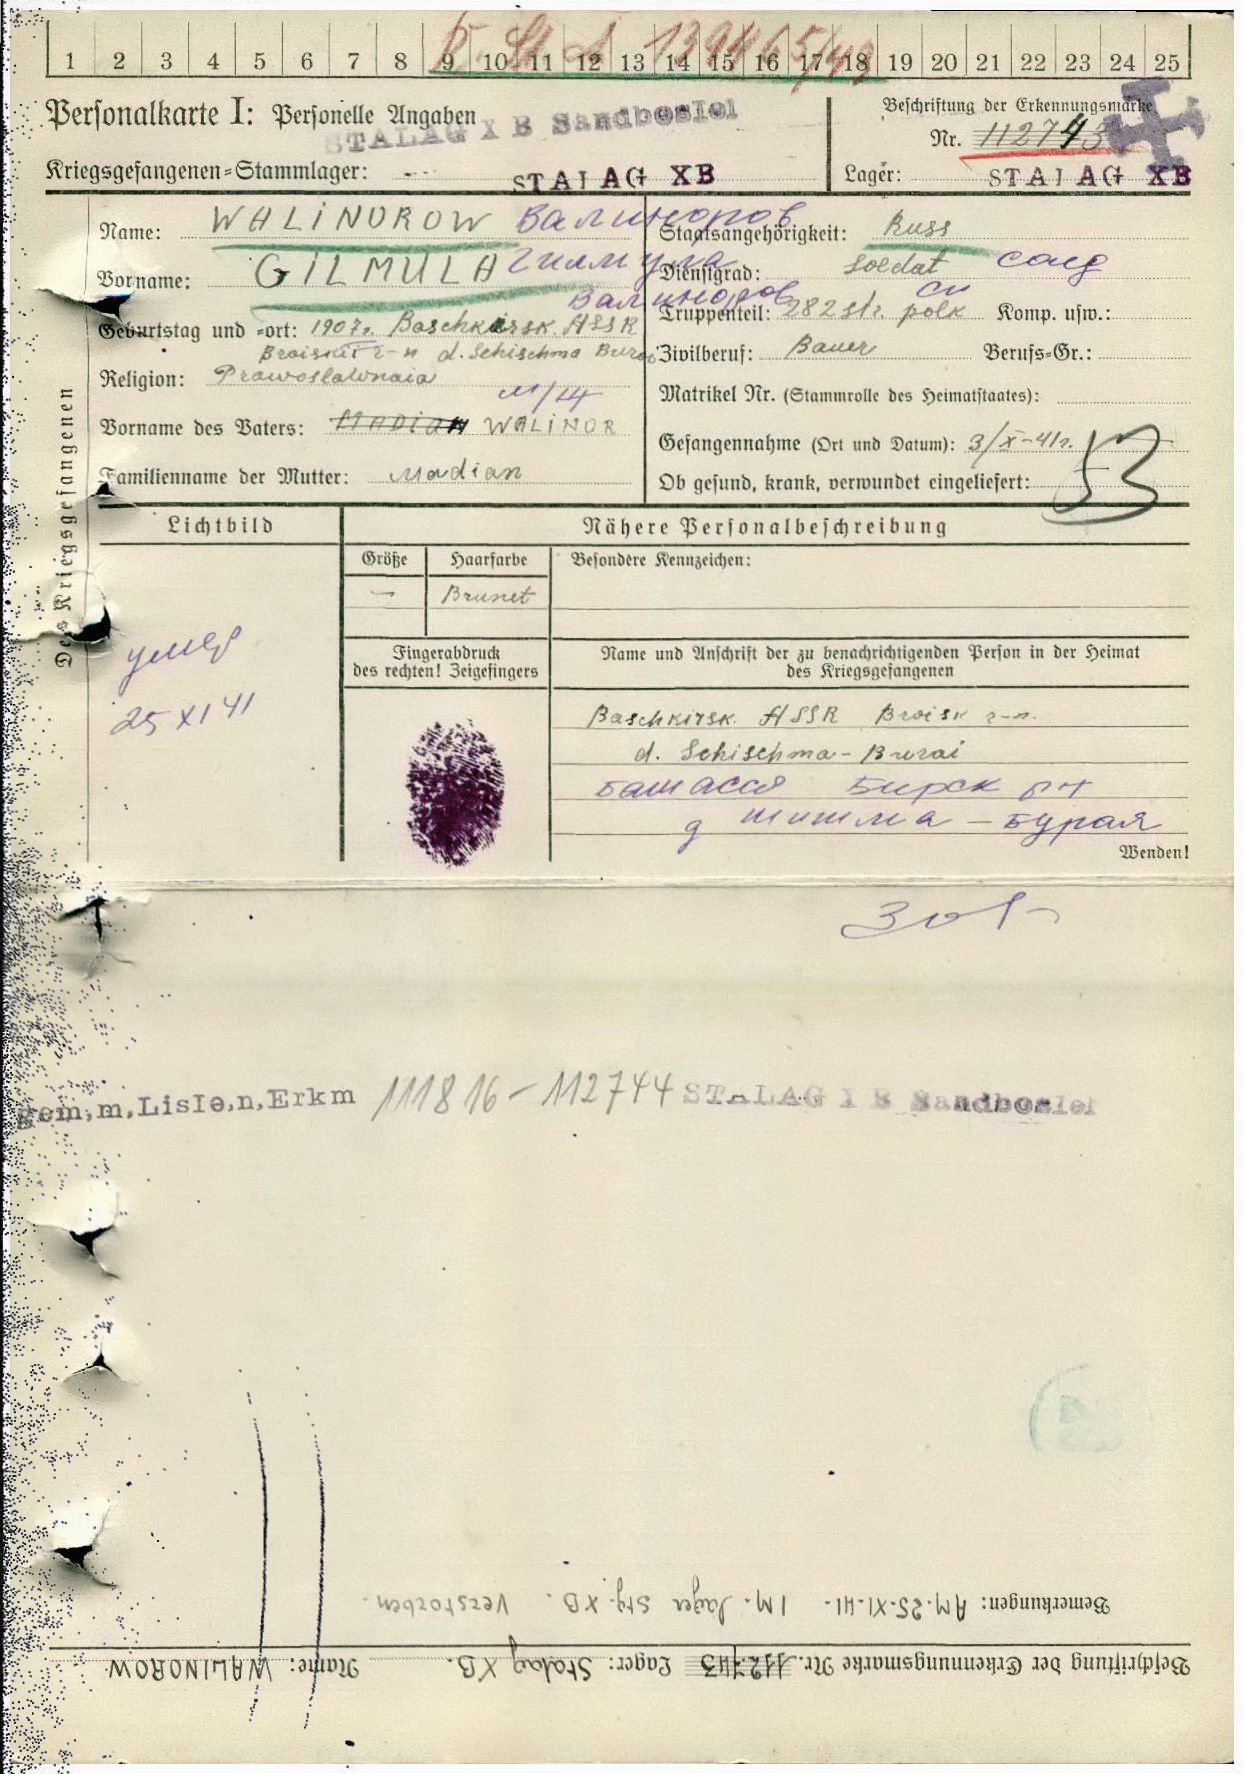 1 2 3 4 5 6 7 8 9 10 11 12 13 14 15 16 17 18 19 20 21 22 23 24 25
Personalkarte I: Personelle Angaben
STALAG X B Sandbostel
Kriegsgefangenen-Stammlager: STALAG XB
Beschriftung der Erkennungsmarke
Nr. 112743
Lager: STALAG XB
Des Kriegsgefangenen
Name: WALINOROW Валиноров
Vorname: GILMULA Гилмула
Валиноров
Geburtstag und -ort: 1907г. Baschkirsk ASSR
Broiskii r-n d. Schischma Burai
Religion: Prawoslawnaia
Vorname des Vaters: MADIAN WALINOR
Familienname der Mutter: Madian
Staatsangehörigkeit: Russ
Dienstgrad: Soldat солд
Truppenteil: 282 str. polk сп Komp. usw.:
Zivilberuf: Bauer Berufs-Gr.:
Matrikel Nr. (Stammrolle des Heimatstaates):
Gefangennahme (Ort und Datum): 3/X-41г.
Ob gesund, krank, verwundet eingeliefert:
53
Lichtbild
умер
25 XI 41
Nähere Personalbeschreibung
Größe Haarfarbe Besondere Kennzeichen:
— Brunet
Fingerabdruck
des rechten! Zeigefingers
Name und Anschrift der zu benachrichtigenden Person in der Heimat
des Kriegsgefangenen
Baschkirsk. ASSR Broisk r-n.
d. Schischma-Burai
Башасср Бирск р-н
д Шишма-Бурая
Wenden!
gem,m,Liste,n,Erkm 111816-112744 STALAG X B Sandbostel
Bemerkungen: AM. 25.XI.41. IM. Lager Stg. XB. Verstorben.
Beschriftung der Erkennungsmarke Nr. 112743 Lager: Stalag XB. Name: WALINOROW